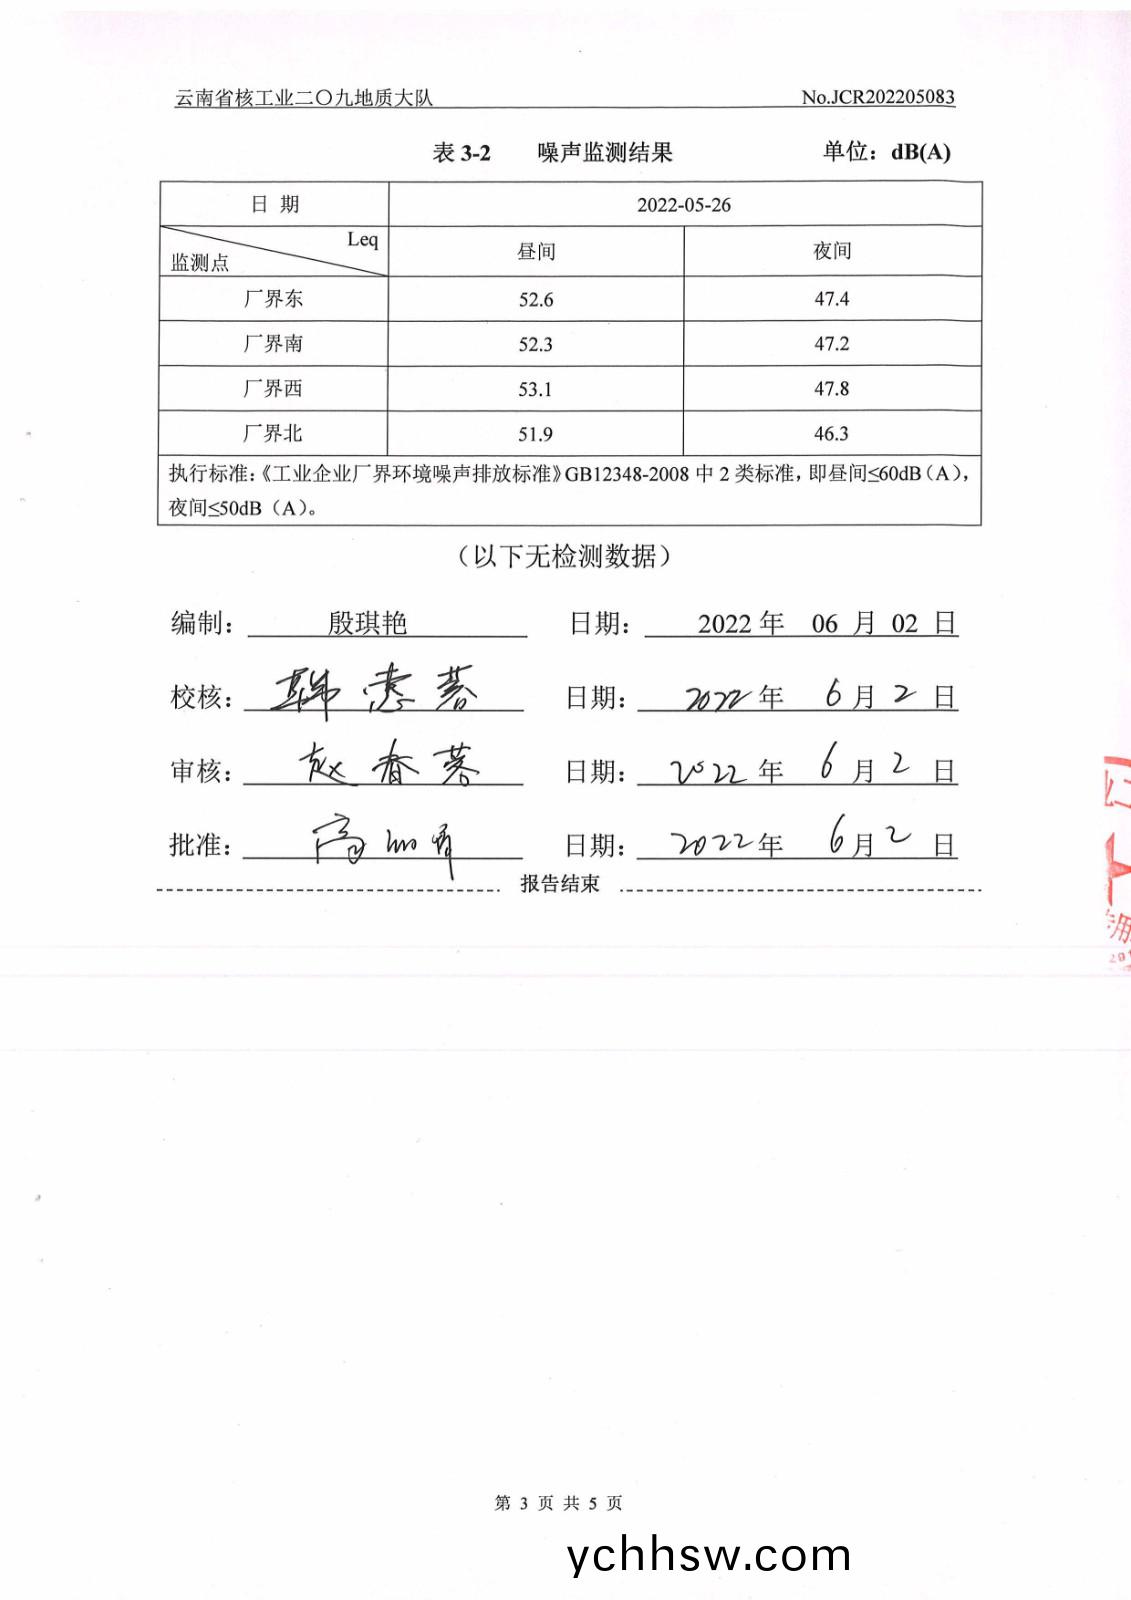 云南省核工业二〇九地质大队 No.JCR202205083
表 3-2 噪声监测结果 单位：dB(A)
日 期 2022-05-26
Leq
监测点 昼间 夜间
厂界东 52.6 47.4
厂界南 52.3 47.2
厂界西 53.1 47.8
厂界北 51.9 46.3
执行标准：《工业企业厂界环境噪声排放标准》GB12348-2008 中 2 类标准，即昼间≤60dB（A），
夜间≤50dB（A）。
（以下无检测数据）
编制： 殷琪艳 日期： 2022 年 06 月 02 日
校核： 韩惠蓉 日期： 2022 年 6 月 2 日
审核： 赵春蓉 日期： 2022 年 6 月 2 日
批准： 高 日期： 2022 年 6 月 2 日
报告结束
专用
第 3 页 共 5 页
ychhsw.com